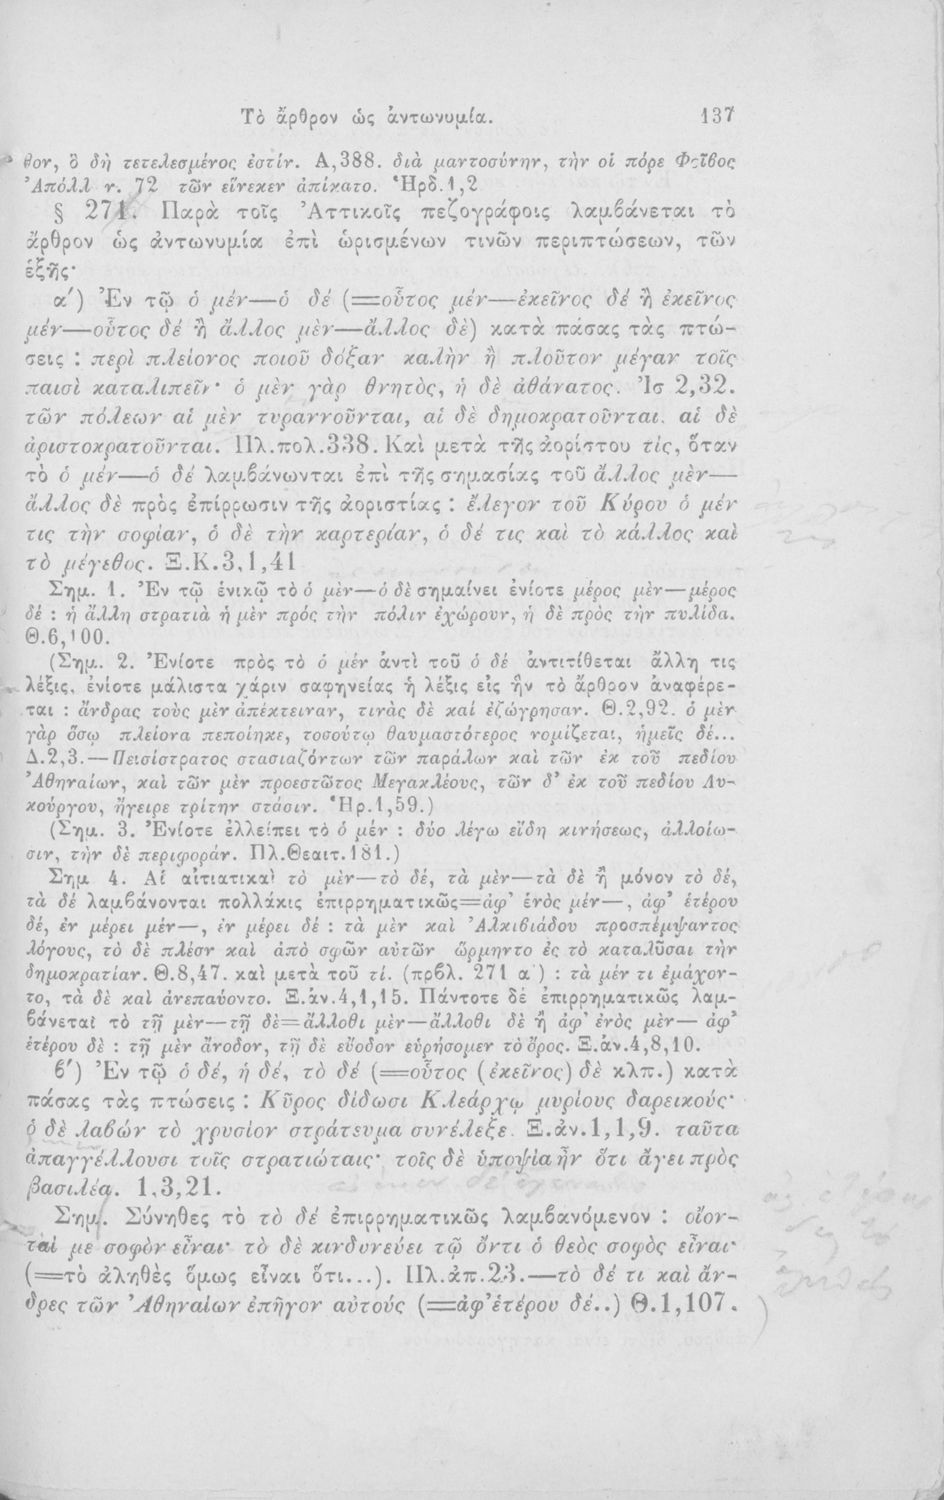 Τὸ ἄρθρον ὡς ἀντωνυμία. 137
θον, ὃ δὴ τετελεσμένος ἐστίν. Α,388. διὰ μαντοσύνην, τὴν οἱ πόρε Φοῖβος
Ἀπόλλ ν. 72 τῶν εἵνεκεν ἀπίκατο. Ἡρδ.1,2
§ 271. Παρὰ τοῖς Ἀττικοῖς πεζογράφοις λαμβάνεται τὸ
ἄρθρον ὡς ἀντωνυμία ἐπὶ ὡρισμένων τινῶν περιπτώσεων, τῶν
ἑξῆς·
α΄) Ἐν τῷ ὁ μέν—ὁ δέ (=οὗτος μέν—ἐκεῖνος δέ ἢ ἐκεῖνος
μέν—οὗτος δέ ἢ ἄλλος μὲν—ἄλλος δὲ) κατὰ πάσας τὰς πτώ-
σεις : περὶ πλείονος ποιοῦ δόξαν καλὴν ἢ πλοῦτον μέγαν τοῖς
παισὶ καταλιπεῖν· ὁ μὲν γὰρ θνητὸς, ἡ δὲ ἀθάνατος. Ἰσ 2,32.
τῶν πόλεων αἱ μὲν τυραννοῦνται, αἱ δὲ δημοκρατοῦνται. αἱ δὲ
ἀριστοκρατοῦνται. Πλ.πολ.338. Καὶ μετὰ τῆς ἀορίστου τὶς, ὅταν
τὸ ὁ μέν—ὁ δέ λαμβάνωνται ἐπὶ τῆς σημασίας τοῦ ἄλλος μὲν—
ἄλλος δὲ πρὸς ἐπίρρωσιν τῆς ἀοριστίας : ἔλεγον τοῦ Κύρου ὁ μέν
τις τὴν σοφίαν, ὁ δὲ τὴν καρτερίαν, ὁ δέ τις καὶ τὸ κάλλος καὶ
τὸ μέγεθος. Ξ.Κ.3,1,41
Σημ. 1. Ἐν τῷ ἑνικῷ τὸ ὁ μὲν—ὁ δὲ σημαίνει ἐνίοτε μέρος μὲν—μέρος
δέ : ἡ ἄλλη στρατιὰ ἡ μὲν πρός τὴν πόλιν ἐχώρουν, ἡ δὲ πρὸς τὴν πυλίδα.
Θ.6,100.
(Σημ. 2. Ἐνίοτε πρὸς τὸ ὁ μέν ἀντὶ τοῦ ὁ δέ ἀντιτίθεται ἄλλη τις
λέξις. ἐνίοτε μάλιστα χάριν σαφηνείας ἡ λέξις εἰς ἣν τὸ ἄρθρον ἀναφέρε-
ται : ἄνδρας τοὺς μὲν ἀπέκτειναν, τινὰς δὲ καί ἐζώγρησαν. Θ.2,92. ὁ μὲν
γὰρ ὅσῳ πλείονα πεποίηκε, τοσούτῳ θαυμαστότερος νομίζεται, ἡμεῖς δέ...
Δ.2,3.—Πεισίστρατος στασιαζόντων τῶν παράλων καὶ τῶν ἐκ τοῦ πεδίου
Ἀθηναίων, καὶ τῶν μὲν προεστῶτος Μεγακλέους, τῶν δ' ἐκ τοῦ πεδίου Λυ-
κούργου, ἤγειρε τρίτην στάσιν. Ἡρ.1,59.)
(Σημ. 3. Ἐνίοτε ἐλλείπει τὸ ὁ μέν : δύο λέγω εἴδη κινήσεως, ἀλλοίω-
σιν, τὴν δὲ περιφοράν. Πλ.Θεαιτ.181.)
Σημ 4. Αἱ αἰτιατικαὶ τὸ μὲν—τὸ δέ, τὰ μὲν—τὰ δὲ ἢ μόνον τὸ δέ,
τὰ δέ λαμβάνονται πολλάκις ἐπιρρηματικῶς=ἀφ' ἑνὸς μέν—, ἀφ' ἑτέρου
δέ, ἐν μέρει μέν—, ἐν μέρει δέ : τὰ μὲν καὶ Ἀλκιβιάδου προσπέμψαντος
λόγους, τὸ δὲ πλέον καὶ ἀπὸ σφῶν αὐτῶν ὥρμηντο ἐς τὸ καταλῦσαι τὴν
δημοκρατίαν. Θ.8,47. καὶ μετὰ τοῦ τί. (πρβλ. 271 α΄) : τὰ μέν τι ἐμάχον-
το, τὰ δὲ καὶ ἀνεπαύοντο. Ξ.ἀν.4,1,15. Πάντοτε δὲ ἐπιρρηματικῶς λαμ-
βάνεται τὸ τῇ μὲν—τῇ δὲ=ἄλλοθι μὲν—ἄλλοθι δὲ ἢ ἀφ' ἑνὸς μὲν— ἀφ'
ἑτέρου δὲ : τῇ μὲν ἄνοδον, τῇ δὲ εὔοδον εὑρήσομεν τὸ ὄρος. Ξ.ἀν.4,8,10.
β΄) Ἐν τῷ ὁ δέ, ἡ δέ, τὸ δέ (=οὗτος (ἐκεῖνος) δὲ κλπ.) κατὰ
πάσας τὰς πτώσεις : Κῦρος δίδωσι Κλεάρχῳ μυρίους δαρεικούς·
ὁ δὲ λαβών τὸ χρυσίον στράτευμα συνέλεξε. Ξ.ἀν.1,1,9. ταῦτα
ἀπαγγέλλουσι τοῖς στρατιώταις· τοῖς δὲ ὑποψία ἦν ὅτι ἄγει πρὸς
βασιλέα. 1,3,21.
Σημ. Σύνηθες τὸ τὸ δέ ἐπιρρηματικῶς λαμβανόμενον : οἴον-
ταί με σοφὸν εἶναι· τὸ δὲ κινδυνεύει τῷ ὄντι ὁ θεὸς σοφὸς εἶναι·
(=τὸ ἀληθὲς ὅμως εἶναι ὅτι...). Πλ.ἀπ.23.—τὸ δέ τι καὶ ἄν-
δρες τῶν Ἀθηναίων ἐπῆγον αὐτούς (=ἀφ'ἑτέρου δέ..) Θ.1,107.